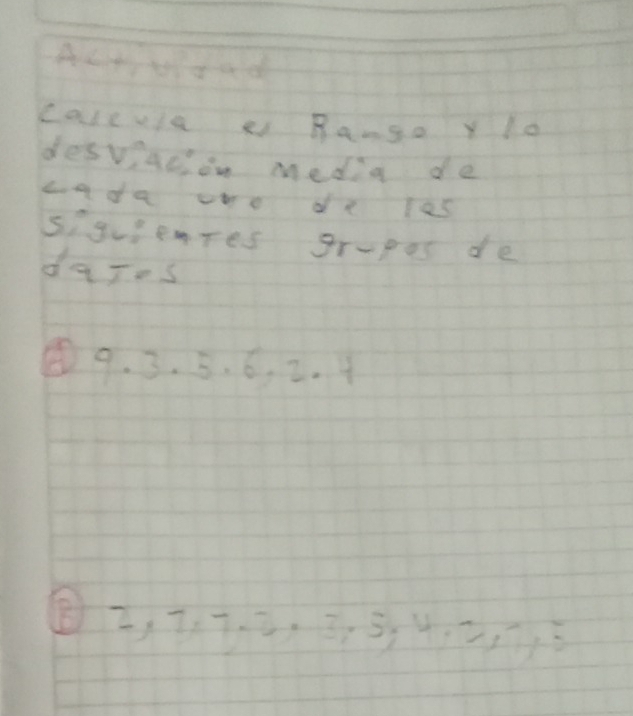 Actividad
Calcula el Rango y la
desviación media de
cada uno de los
siguientes grupos de
datos
A 9.3.5.6,2.4
B